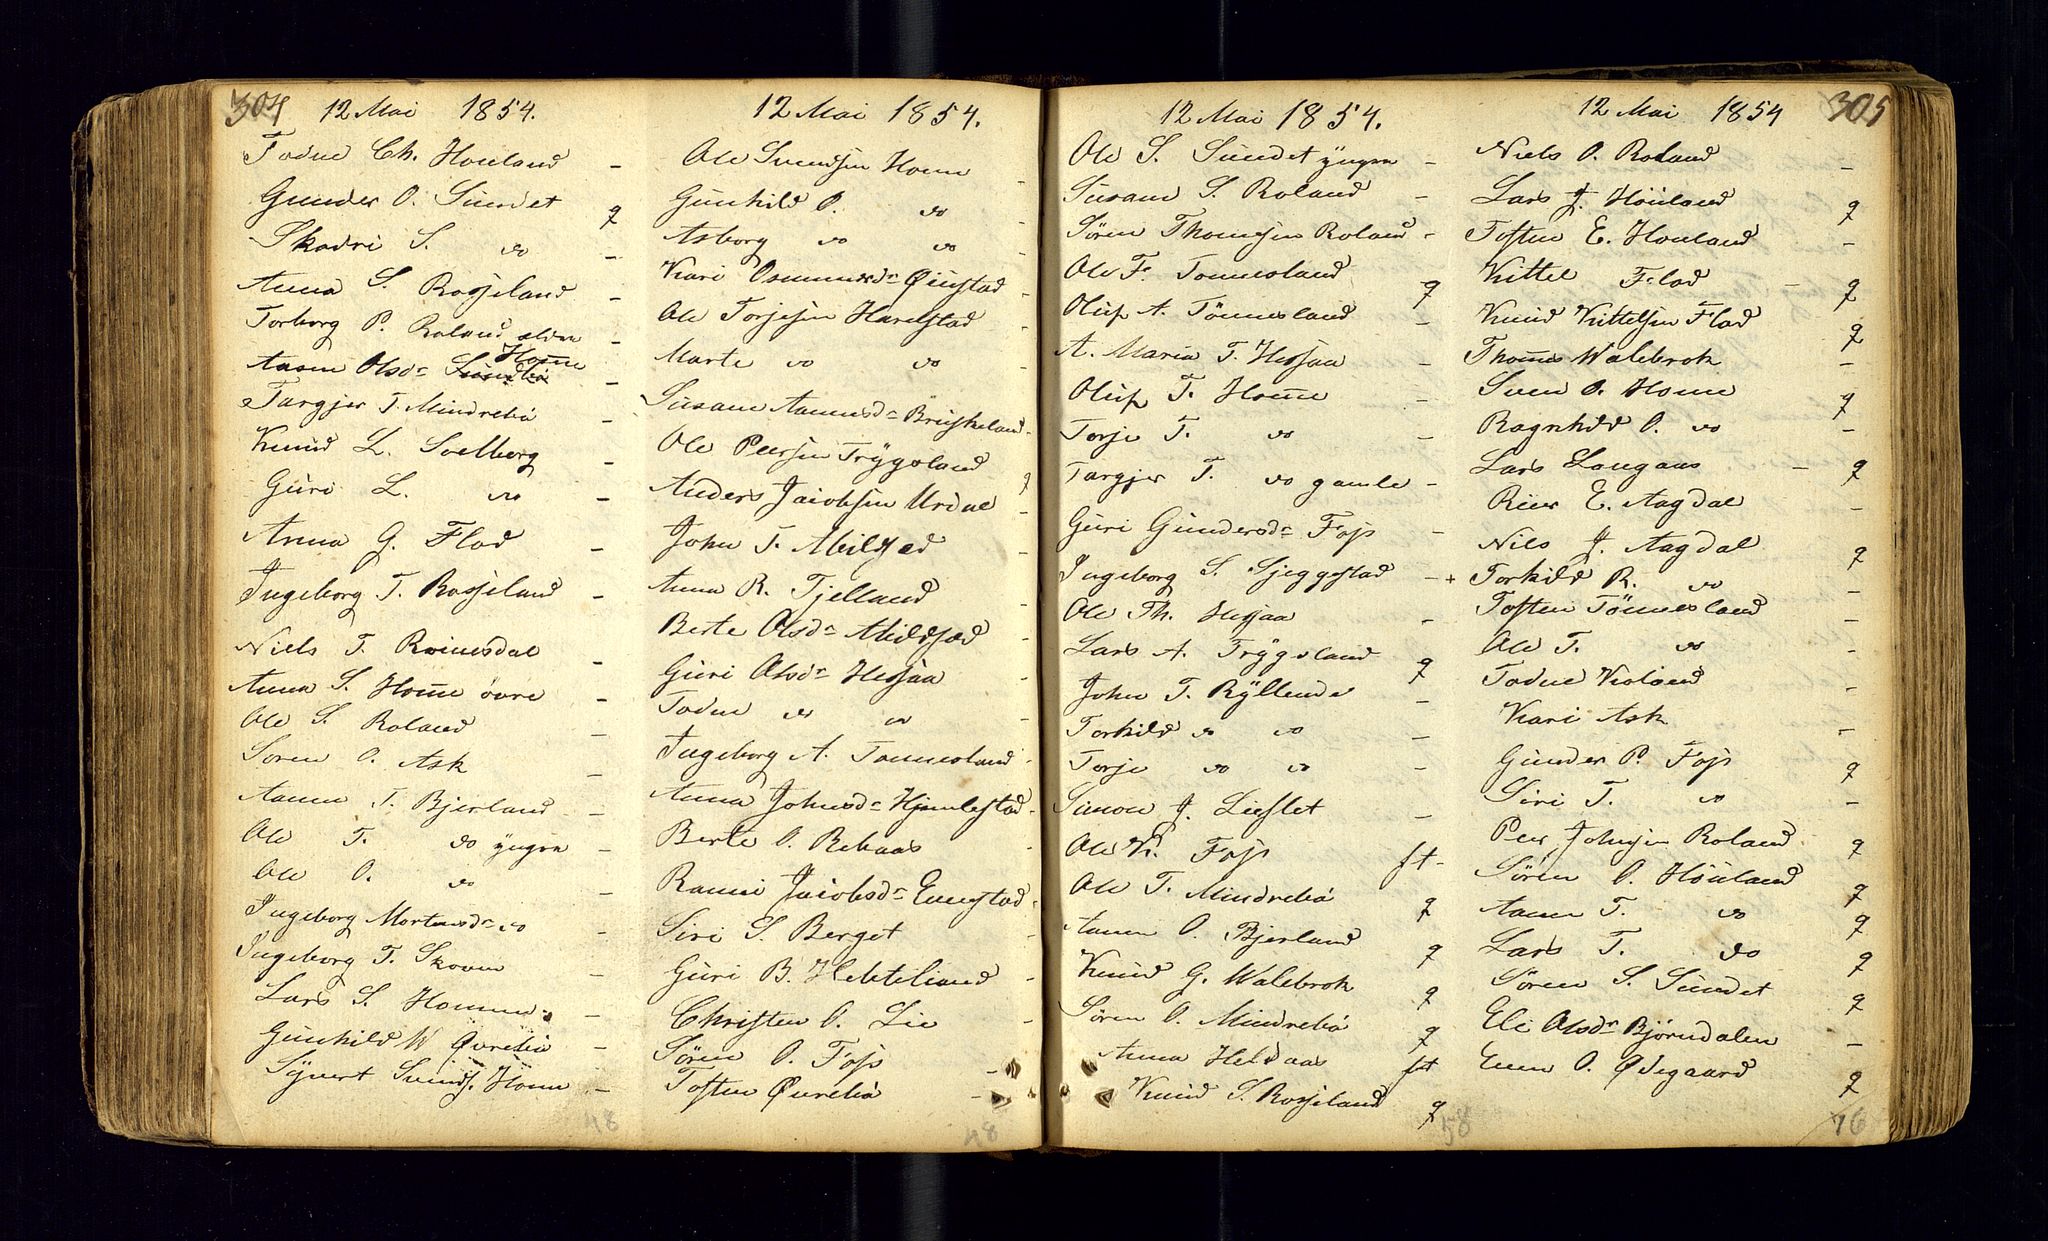 304 12 Mai 1854.
Todne Ch. Houland -
Gunder O. Sundet q
Skadri S. do -
Anna S. Rosseland -
Torborg P. Roland eldre -
Aasne Olsdr Homme -
Targjer T. Mindrebø -
Knud L. Solberg -
Guri L. do -
Anna G. Flad -
Ingeborg T. Rosseland -
Niels T. Roinesdal -
Anna S. Homme øvre -
Ole S. Roland -
Soren O. Ask -
Aanen T. Bjerland -
Ole T. do yngre -
Ole O. do -
Ingeborg Mortensdr do -
Ingeborg T. Skoven -
Lars S. Homme -
Gunhild W Øvrebø -
Sivert Svends. Home -
48
12 Mai 1854.
Ole Svendsen Home -
Gunhild O. do -
Asborg do do -
Kari Osmundsdr Øiestad -
Ole Torjesen Harelstad -
Marte do do -
Susane Aanensdr Bruskeland -
Ole Peersen Trygsland q
Anders Jacobsen Urdal -
John T. Meilsæd -
Anna R. Fjelland -
Berte Olsdr Mildsæd -
Guri Olsdr Hessaa -
Todne do do -
Ingeborg A. Tonnesland -
Anna Johnsdr Hjemlestad -
Berte O. Rebaas -
Ranni Jacobsdr Evenstad -
Siri S. Berget -
Guri B. Hekteliand -
Christen O. Lie -
Søren O. Foss -
Tosten Øvrebø -
48
12 Mai 1854.
Ole S. Sundet yngre -
Susane S. Roland -
Søren Thomesen Roland -
Ole F. Tonnesland q
Oluf A. Tönnesland -
A. Maria T. Hessaa -
Oluf T. Home -
Torje T. do -
Targjer T. do gamle -
Guri Gundersdr Foss -
Ingeborg S. Sjeggestad -
Ole Th. Hessaa -
Lars A. Trygsland q
John T. Kyllende -
Torkild do do -
Torje do do -
Simon J. Lieslet -
Ole K. Foss ft -
Ole T. Mindrebø q
Aanen O. Bjerland q
Knud G. Walebrok q
Søren O. Mindrebø q
Anna Heldaas ft
Knud S. Rosseland q
58
12 Mai 1854 305
Niels O. Roland -
Lars J. Höuland q
Tosten E. Houland -
Kittel Flad - q
Knud Kittelsen Flad q
Thomes Walebrok -
Sven O. Home q
Ragnhild O. do -
Lars Langaas - q
Rier E. Aagdal -
Niels J. Aagdal q
+ Torkild R. do
Tosten Tönnesland -
Ole T. do -
Todne Kioland -
Kari Ask -
Gunder P. Foss q
Siri T. do -
Peer Johnsen Roland q
Søren O. Höuland q
Aanen T. do q
Lars T. do q
Søren S. Sundet q
Eli Olsdr Bjørndalen -
Even O. Ødegaard q
76